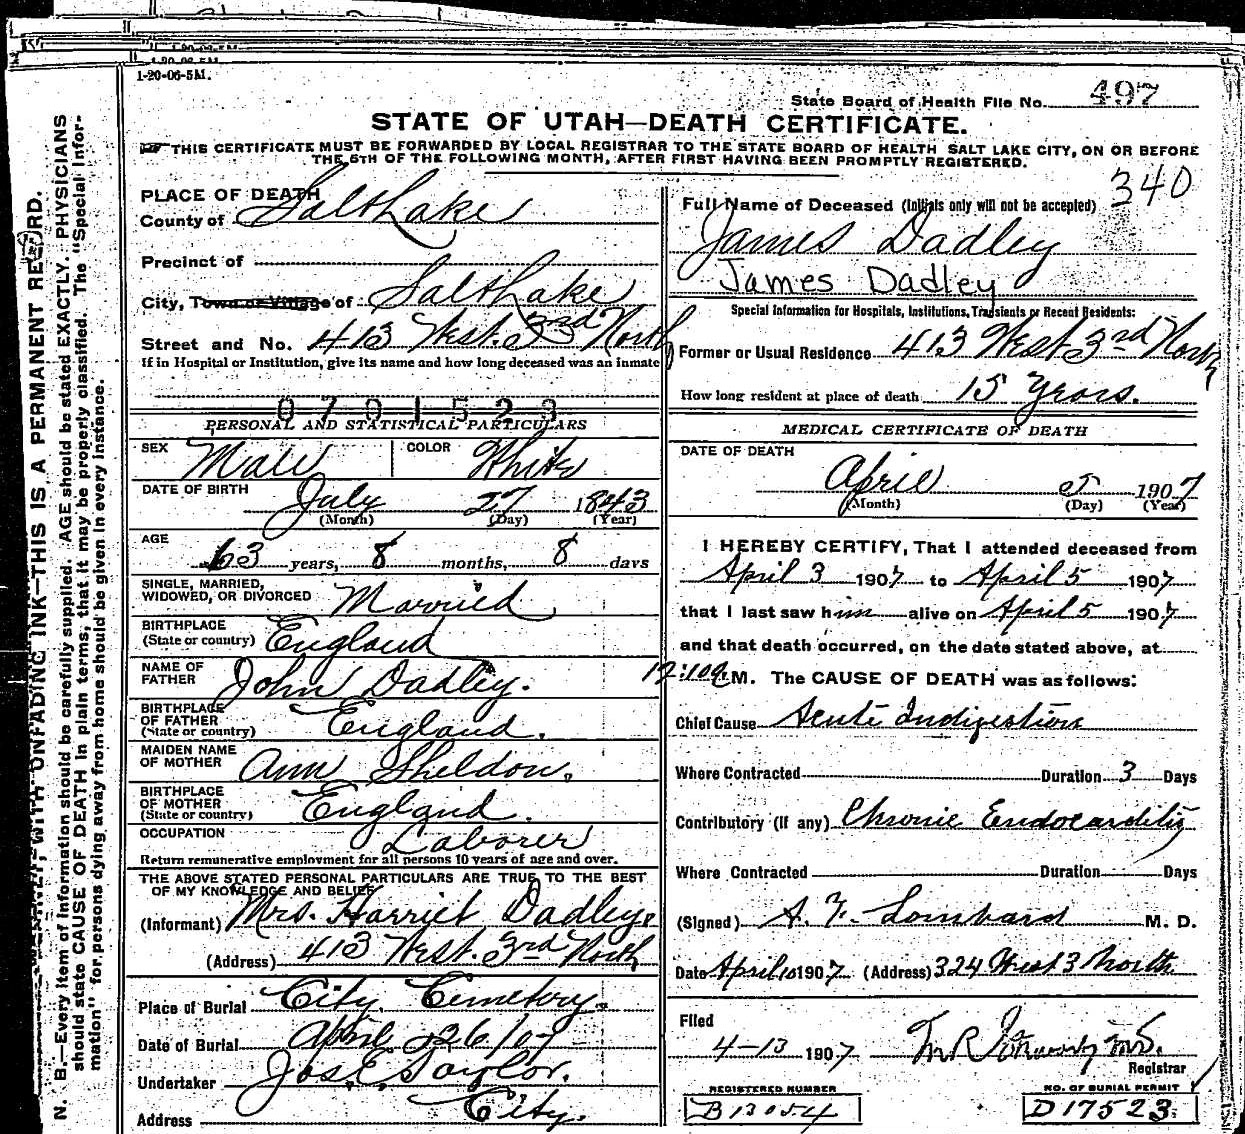 1-20-06-5M.
State Board of Health File No. 497
STATE OF UTAH—DEATH CERTIFICATE.
THIS CERTIFICATE MUST BE FORWARDED BY LOCAL REGISTRAR TO THE STATE BOARD OF HEALTH SALT LAKE CITY, ON OR BEFORE
THE 5TH OF THE FOLLOWING MONTH, AFTER FIRST HAVING BEEN PROMPTLY REGISTERED.
340
N. B.—Every item of Information should be carefully supplied. AGE should be stated EXACTLY. PHYSICIANS
should state CAUSE OF DEATH in plain terms, that it may be properly classified. The "Special Infor-
mation" for persons dying away from home should be given in every instance.
WITH UNFADING INK—THIS IS A PERMANENT RECORD.
PLACE OF DEATH
County of Salt Lake
Precinct of
City, Town or Village of Salt Lake
Street and No. 413 West. 3rd North
If in Hospital or Institution, give its name and how long deceased was an inmate
0701523
PERSONAL AND STATISTICAL PARTICULARS
SEX Male COLOR White
DATE OF BIRTH July 27 1843
(Month) (Day) (Year)
AGE 63 years, 8 months, 8 days
SINGLE, MARRIED,
WIDOWED, OR DIVORCED Married
BIRTHPLACE
(State or country) England
NAME OF
FATHER John Dadley.
BIRTHPLACE
OF FATHER
(State or country) England.
MAIDEN NAME
OF MOTHER Ann Sheldon.
BIRTHPLACE
OF MOTHER
(State or country) England.
OCCUPATION Laborer
Return remunerative employment for all persons 10 years of age and over.
THE ABOVE STATED PERSONAL PARTICULARS ARE TRUE TO THE BEST
OF MY KNOWLEDGE AND BELIEF
(Informant) Mrs. Harriet Dadley.
(Address) 413 West. 3rd North
Place of Burial City Cemetery.
Date of Burial April
Undertaker Jos. E. Taylor.
Address City.
Full Name of Deceased (Initials only will not be accepted)
James Dadley
James Dadley
Special Information for Hospitals, Institutions, Transients or Recent Residents:
Former or Usual Residence 413 West 3rd North
How long resident at place of death 15 Years.
MEDICAL CERTIFICATE OF DEATH
DATE OF DEATH
April 5 1907
(Month) (Day) (Year)
I HEREBY CERTIFY, That I attended deceased from
April 3 1907 to April 5 1907
that I last saw him alive on April 5 1907
and that death occurred, on the date stated above, at
12:10 a M. The CAUSE OF DEATH was as follows:
Chief Cause Acute Indigestion
Where Contracted Duration 3 Days
Contributory (if any) Chronic Endocarditis
Where Contracted Duration Days
(Signed) A. Y. Lombard M. D.
Date April 10 1907 (Address) 324 West 3 North
Filed
4-13 1907
Registrar
REGISTERED NUMBER
B13054
NO. OF BURIAL PERMIT
D17523